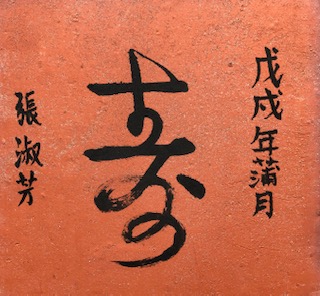 戊戌年蒲月
壽
張淑芳